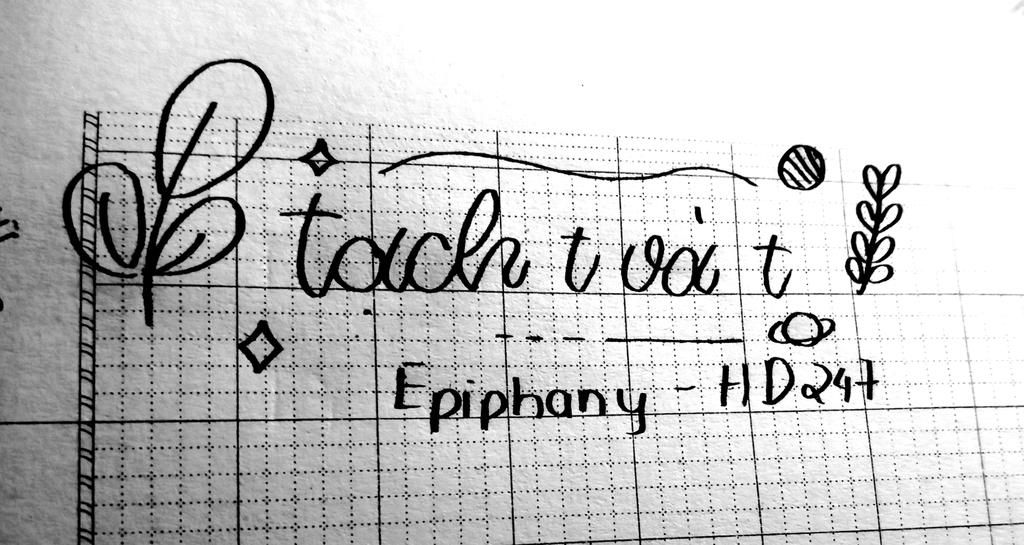 tách t vạ t
Epiphany - HD247